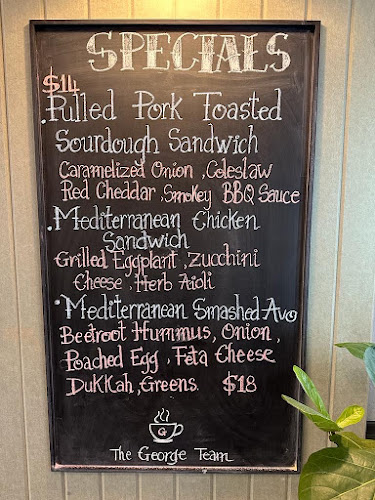 SPECIALS
$14
.Pulled Pork Toasted
Sourdough Sandwich
Caramelized Onion ,Coleslaw
Red Cheddar ,Smokey BBQ Sauce
.Mediterranean Chicken
Sandwich
Grilled Eggplant ,Zucchini
Cheese ,Herb Aioli
.Mediterranean Smashed-Avo
Beetroot Hummus, Onion ,
Poached Egg ,Feta Cheese
Dukkah ,Greens. $18
G
The George Team